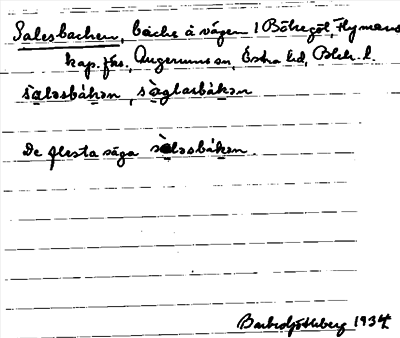 Salesbacken, backe å vägen 1 Bökegöl, Hymans
kap. förs. Augerums sn, Östra hd, Blek. l.
sa̤ləsbàkən, sàgləsbàkən
De flesta säga sàləsbàkən.
Barbro Götheberg 1934